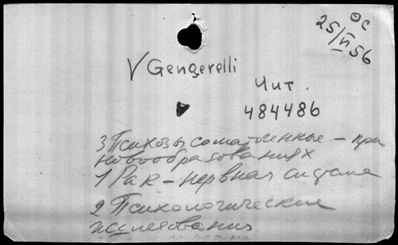 ОС
25/VI 56
V Gengerelli
Чит.
484486
3 Психозы соматогенные – при
новообразованиях
1 Рак – нервная система
2 Психологические
исследования